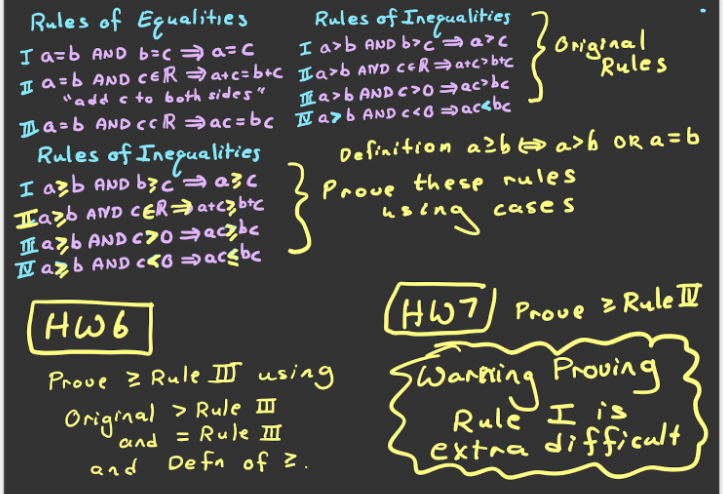 Rules of Equalities
I a=b AND b=c ⇒ a=c
II a=b AND c∈ℝ ⇒ a+c=b+c
"add c to both sides"
III a=b AND c∈ℝ ⇒ ac=bc
Rules of Inequalities
I a>b AND b>c ⇒ a>c
II a>b AND c∈ℝ ⇒ a+c>b+c
III a>b AND c>0 ⇒ ac>bc
IV a>b AND c<0 ⇒ ac<bc
Original
Rules
Definition a≥b ⇔ a>b OR a=b
Rules of Inequalities
I a≥b AND b≥c ⇒ a≥c
II a≥b AND c∈ℝ ⇒ a+c≥b+c
III a≥b AND c>0 ⇒ ac≥bc
IV a≥b AND c<0 ⇒ ac≤bc
Prove these rules
using cases
HW6
Prove ≥ Rule III using
Original > Rule III
and = Rule III
and Defn of ≥.
HW7 Prove ≥ Rule IV
Warning Proving
Rule I is
extra difficult